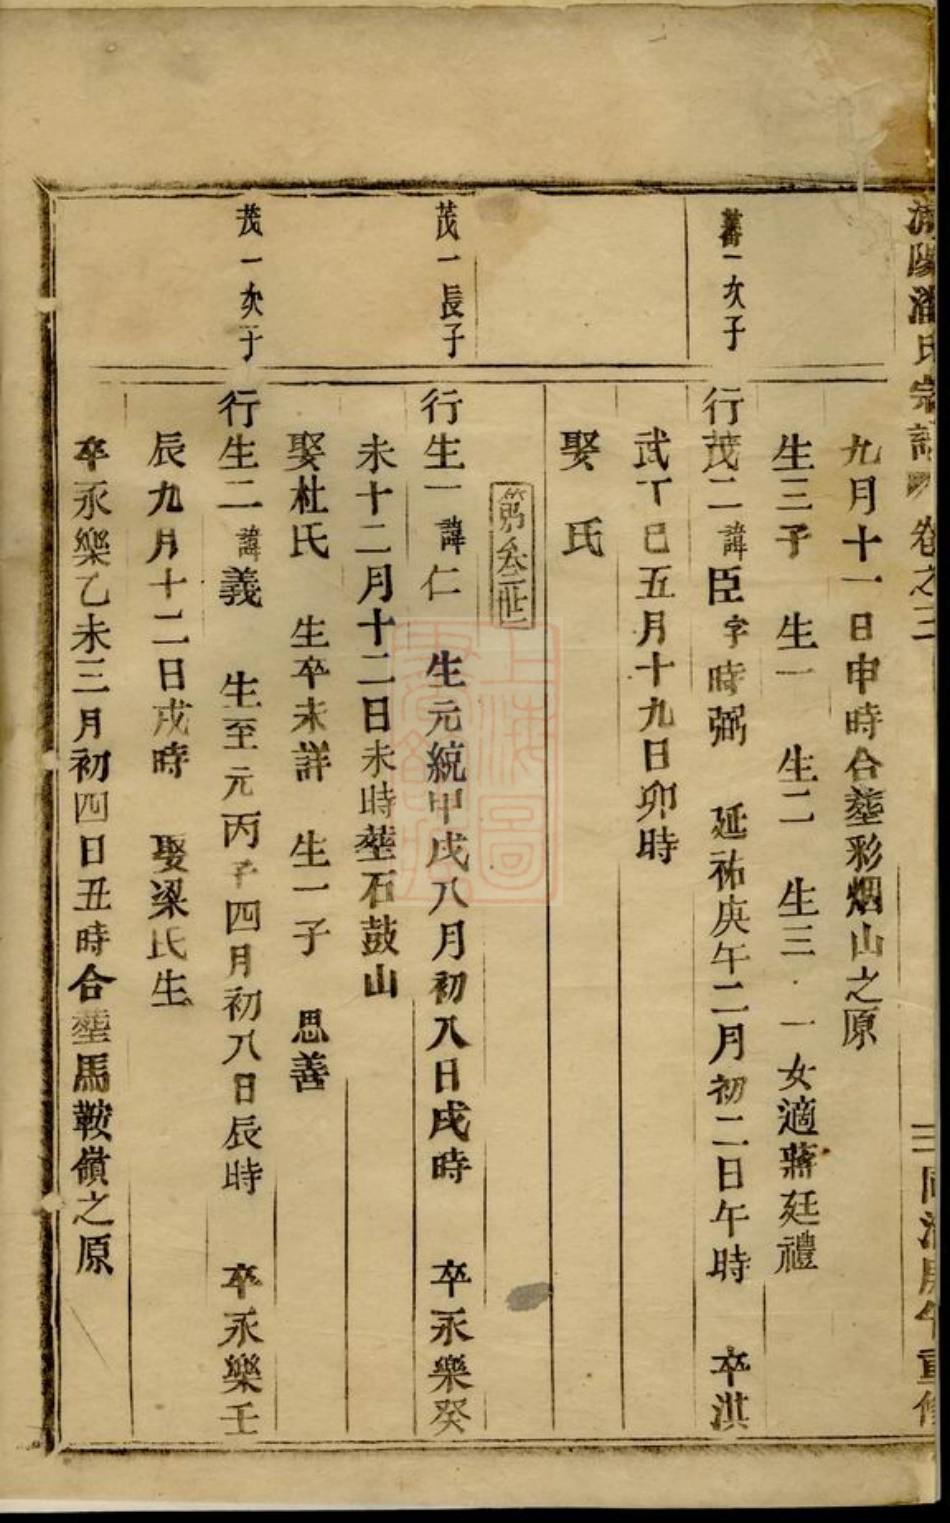 陽潘氏宗譜 卷之三 三 同治庚午重修
九月十一日申時合塟彩烟山之原
生三子 生一 生二 生三 一女適蔣廷禮
蕃一次子
行茂二諱臣字時弼 延祐庚午二月初二日午時 卒淇
武丁巳五月十九日卯時
娶 氏
第叁世
茂一長子
行生一諱仁 生元統甲戌八月初八日戌時 卒永樂癸
未十二月十二日未時塟石鼓山
娶杜氏 生卒未詳 生一子 思善
茂一次子
行生二諱義 生至元丙子四月初八日辰時 卒永樂壬
辰九月十二日戌時 娶梁氏生
卒永樂乙未三月初四日丑時合塟馬鞍嶺之原
上海圖書館藏